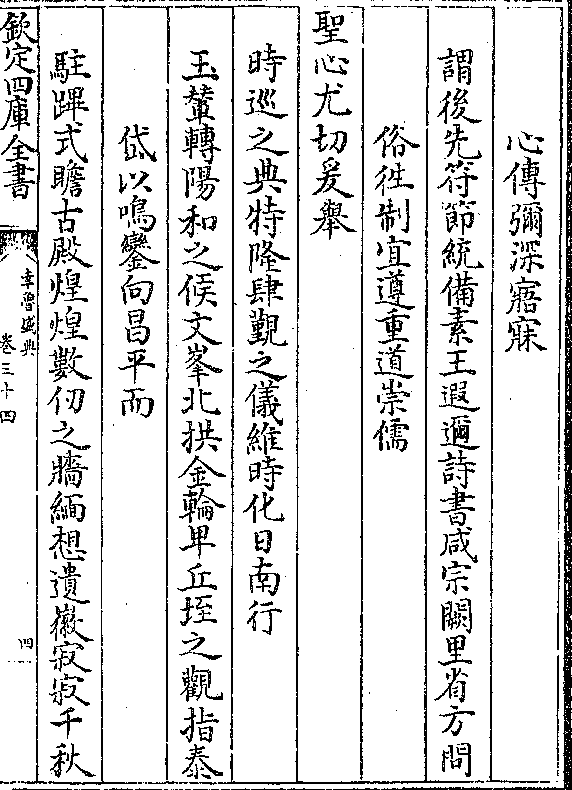 心傳彌深寤寐
謂後先符節統備素王遐邇詩書咸宗闕里省方問
俗徃制宜遵重道崇儒
聖心尤切爰舉
時巡之典特隆肆觀之儀維時化日南行
玉輦轉陽和之候文峯北拱金輪卑丘垤之觀指泰
岱以鳴鑾向昌平而
駐蹕式瞻古殿煌煌數仞之牆緬想遺徽寂寂千秋
欽定四庫全書
幸魯盛典
卷三十四
四